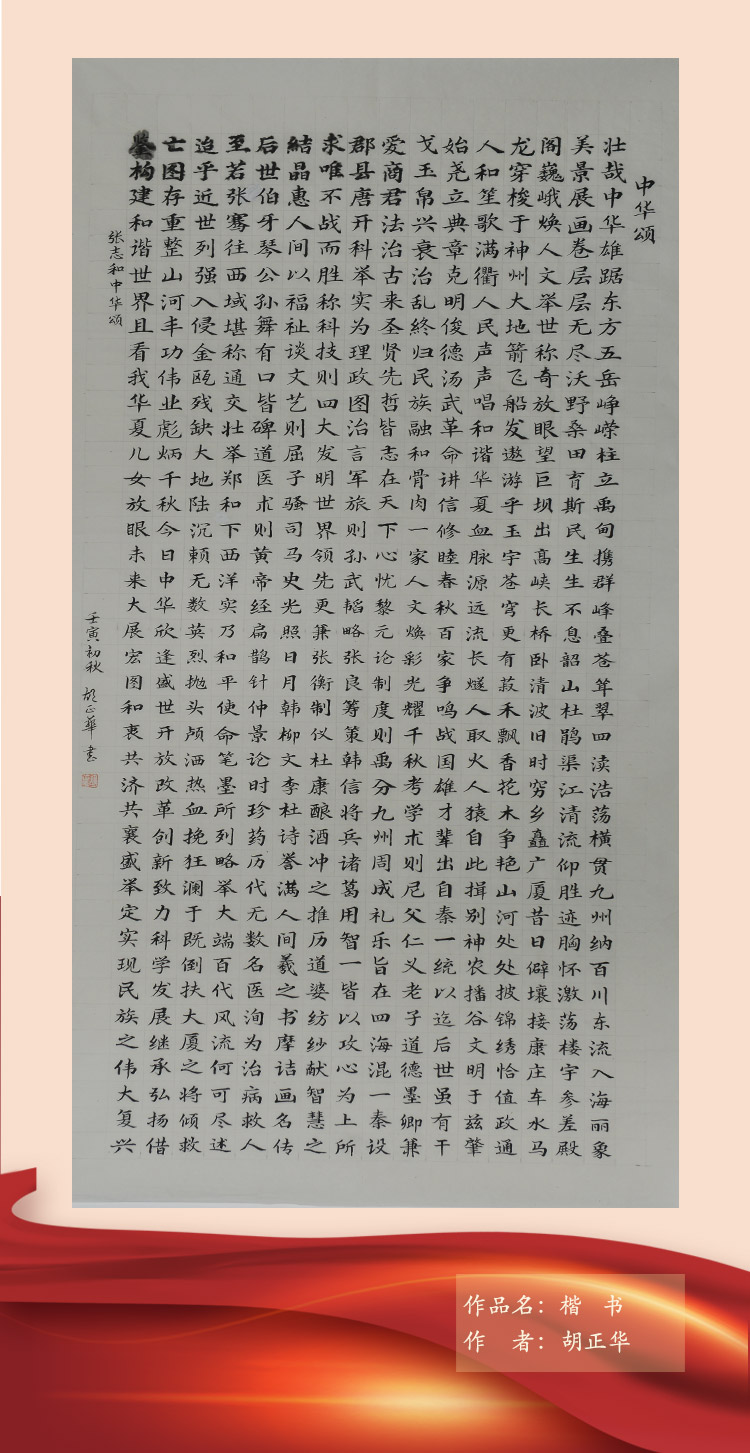 中华颂
壮哉中华雄踞东方五岳峥嵘柱立禹甸携群峰叠苍耸翠四渎浩荡横贯九州纳百川东流入海丽象
美景展画卷层层无尽沃野桑田育斯民生生不息韶山杜鹃渠江清流仰胜迹胸怀激荡楼宇参差殿
阁巍峨焕人文举世称奇放眼望巨坝出高峡长桥卧清波旧时穷乡矗广厦昔日僻壤接康庄车水马
龙穿梭于神州大地箭飞船发遨游乎玉宇苍穹更有菽禾飘香花木争艳山河处处披锦绣恰值政通
人和笙歌满衢人民声声唱和谐华夏血脉源远流长燧人取火人猿自此揖别神农播谷文明于兹肇
始尧立典章克明俊德汤武革命讲信修睦春秋百家争鸣战国雄才辈出自秦一统以迄后世虽有干
戈玉帛兴衰治乱終归民族融和骨肉一家人文焕彩光耀千秋考学术则尼父仁义老子道德墨卿兼
爱商君法治古来圣贤先哲皆志在天下心忧黎元论制度则禹分九州周成礼乐旨在四海混一秦设
郡县唐开科举实为理政图治言军旅则孙武韬略张良筹策韩信将兵诸葛用智一皆以攻心为上所
求唯不战而胜称科技则四大发明世界领先更兼张衡制仪杜康酿酒冲之推历道婆纺纱献智慧之
結晶惠人间以福祉谈文艺则屈子骚司马史光照日月韩柳文李杜诗誉满人间羲之书摩诘画名传
后世伯牙琴公孙舞有口皆碑道医术则黄帝经扁鹊针仲景论时珍药历代无数名医洵为治病救人
至若张骞往西域堪称通交壮举郑和下西洋实乃和平使命笔墨所列略举大端百代风流何可尽述
迨乎近世列强入侵金瓯残缺大地陆沉赖无数英烈抛头颅洒热血挽狂澜于既倒扶大厦之将倾救
亡图存重整山河丰功伟业彪炳千秋今日中华欣逢盛世开放改革创新致力科学发展继承弘扬借
鉴构建和谐世界且看我华夏儿女放眼未来大展宏图和衷共济共襄盛举定实现民族之伟大复兴
张志和中华颂
壬寅初秋 胡正華书
作品名：楷 书
作 者：胡正华